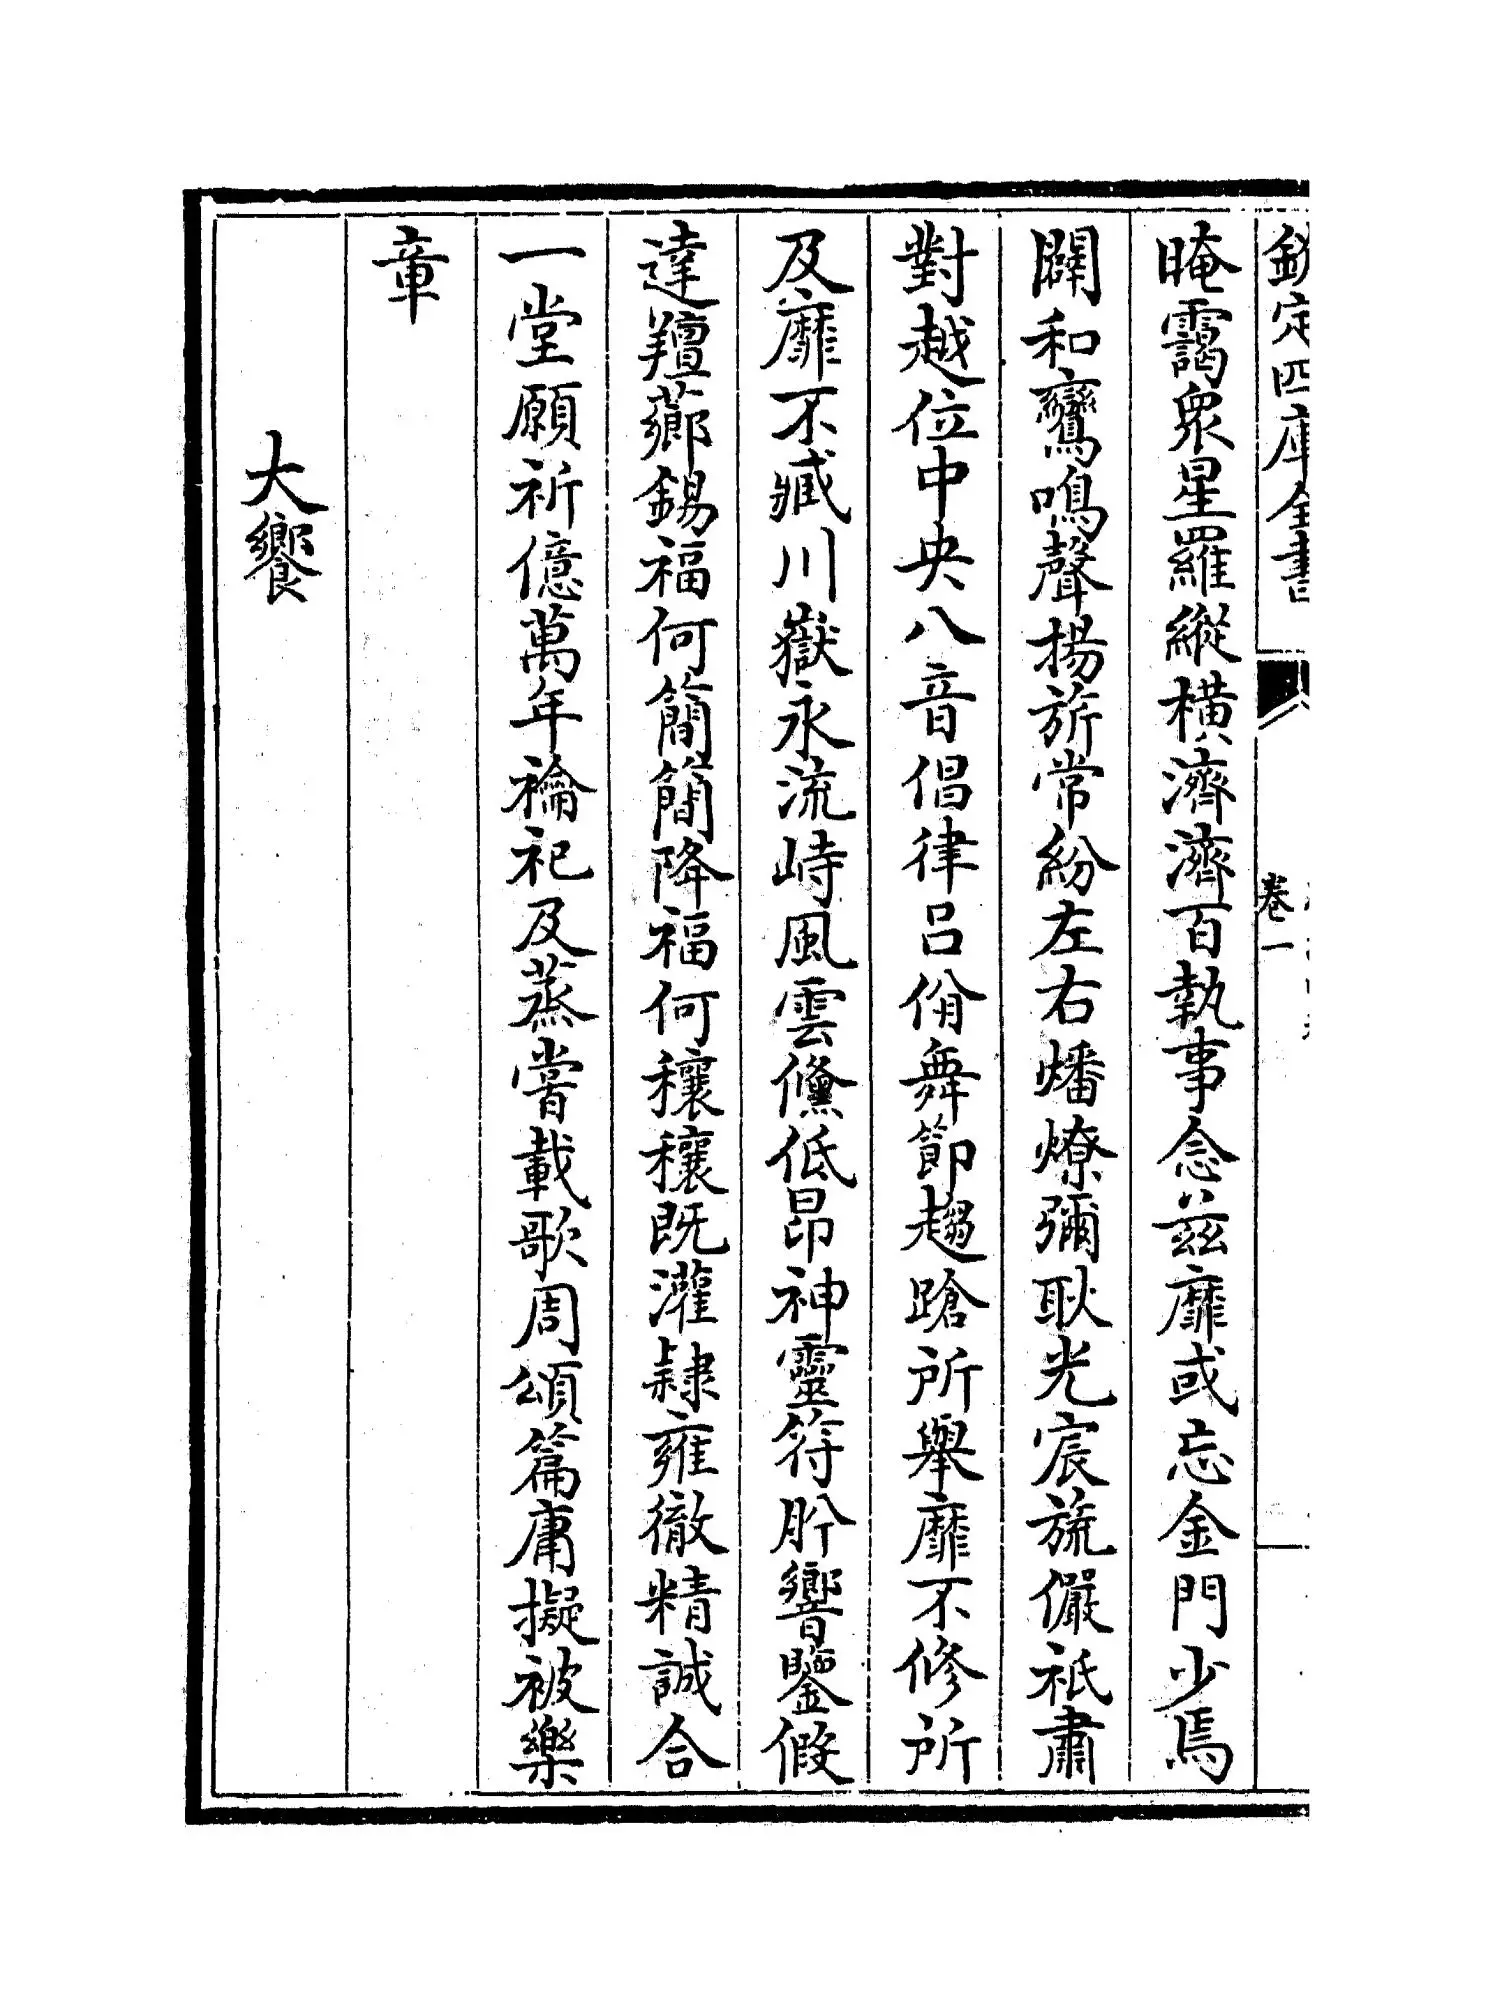 欽定四庫全書
卷一
晻靄衆星羅縱橫濟濟百執事念兹靡或忘金門少焉
闢和鸞鳴聲揚旂常紛左右燔燎彌耿光宸旒儼祇肅
對越位中央八音倡律呂佾舞節趨蹌所舉靡不修所
及靡不臧川嶽永流峙風雲儵低昂神靈符肸響鑒假
達羶薌錫福何簡簡降福何穰穰既灌隸雍徹精誠合
一堂願祈億萬年禴祀及蒸嘗載歌周頌篇庸擬被樂
章
大饗